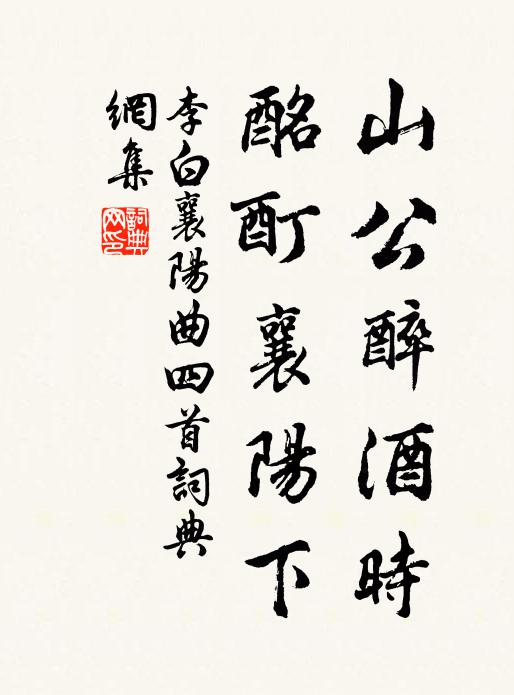 山公醉酒時
酩酊襄陽下
李白襄陽曲四首詞典
網集
詞典
网印